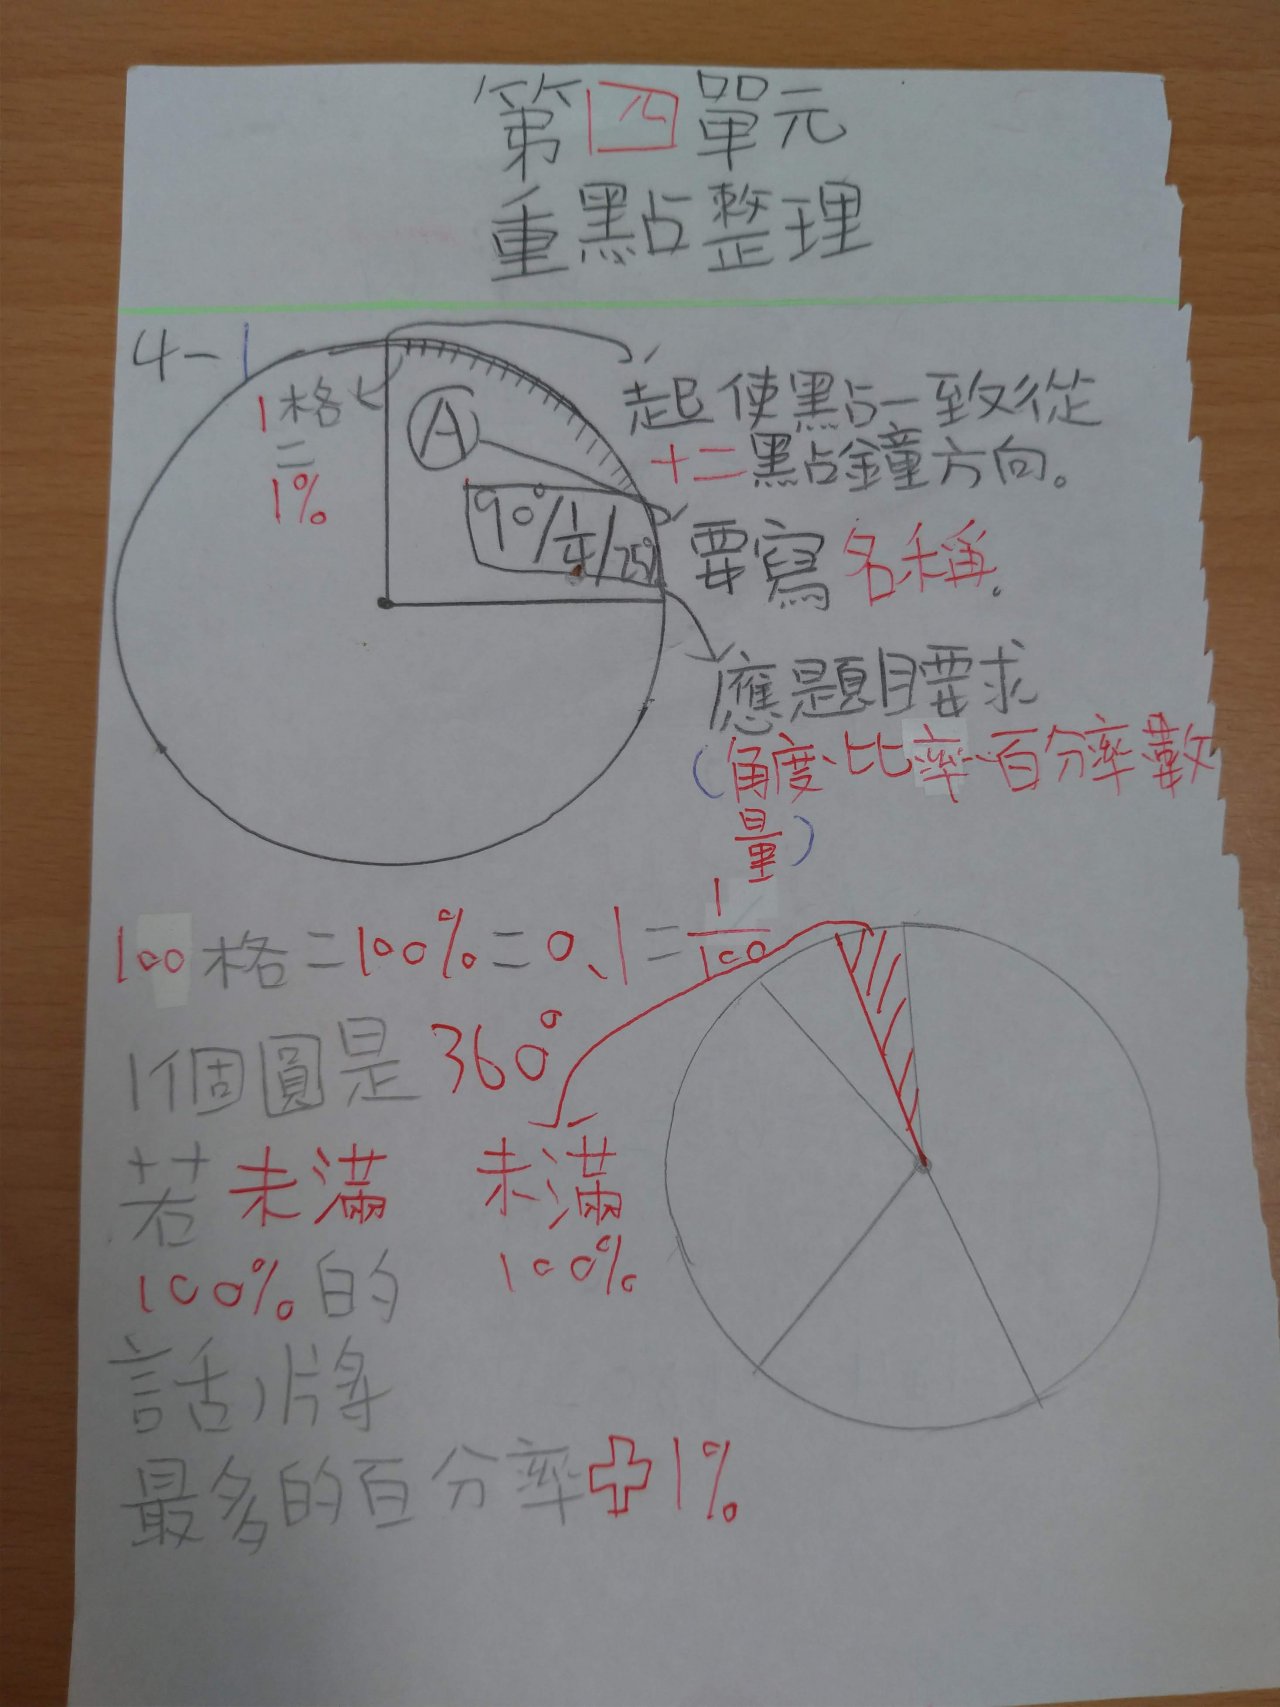 第四單元
重點整理
4-1
1格
=
1%
A
90°/1/4/25%
起使點一致從
十二點鐘方向。
要寫名稱。
應題目要求
(角度、比率、百分率、數
量)
100格=100%=0.1=1/100
1個圓是360°
若未滿
100%的
話,將
最多的百分率+1%
未滿
100%